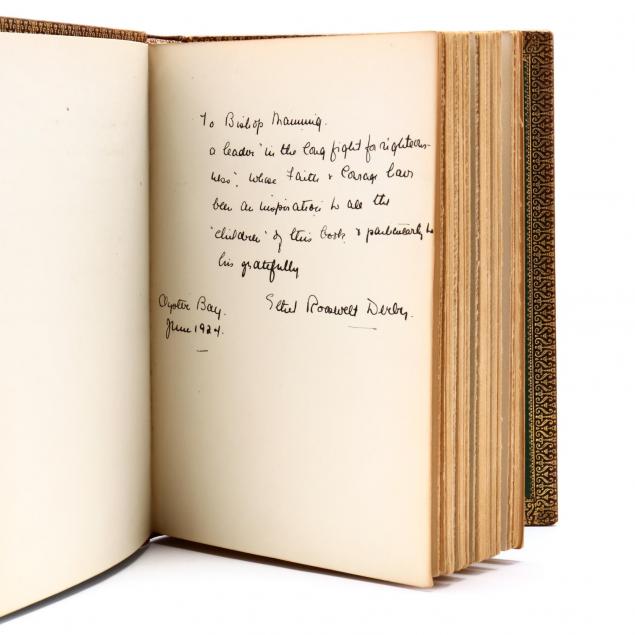 To Bishop Manning.
a leader "in the long fight for righteous-
ness", whose Faith & Courage have
been an inspiration to all the
"children" of this book & particularly to
his gratefully
Oyster Bay. Ethel Roosevelt Derby.
June 1924.